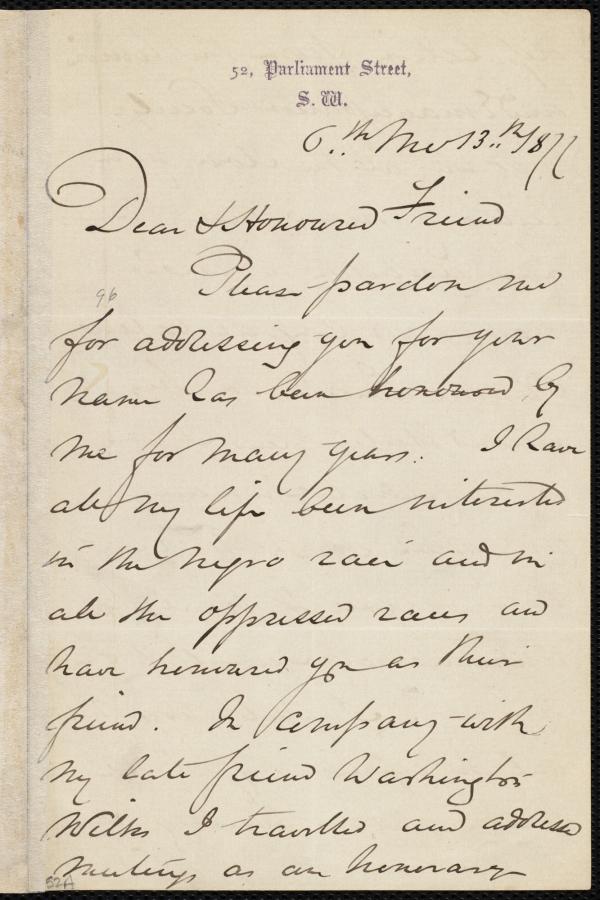 52, Parliament Street,
S. W.
6.th Mo 13.th /877
Dear & Honoured Friend
Please pardon me
96
for addressing you for your
name has been honoured by
me for many years. I have
all my life been interested
in the Negro race and in
all the oppressed races and
have honoured you as their
friend. In company with
my late friend Washington
Wilks I travelled and addressed
meetings as an honorary
52A